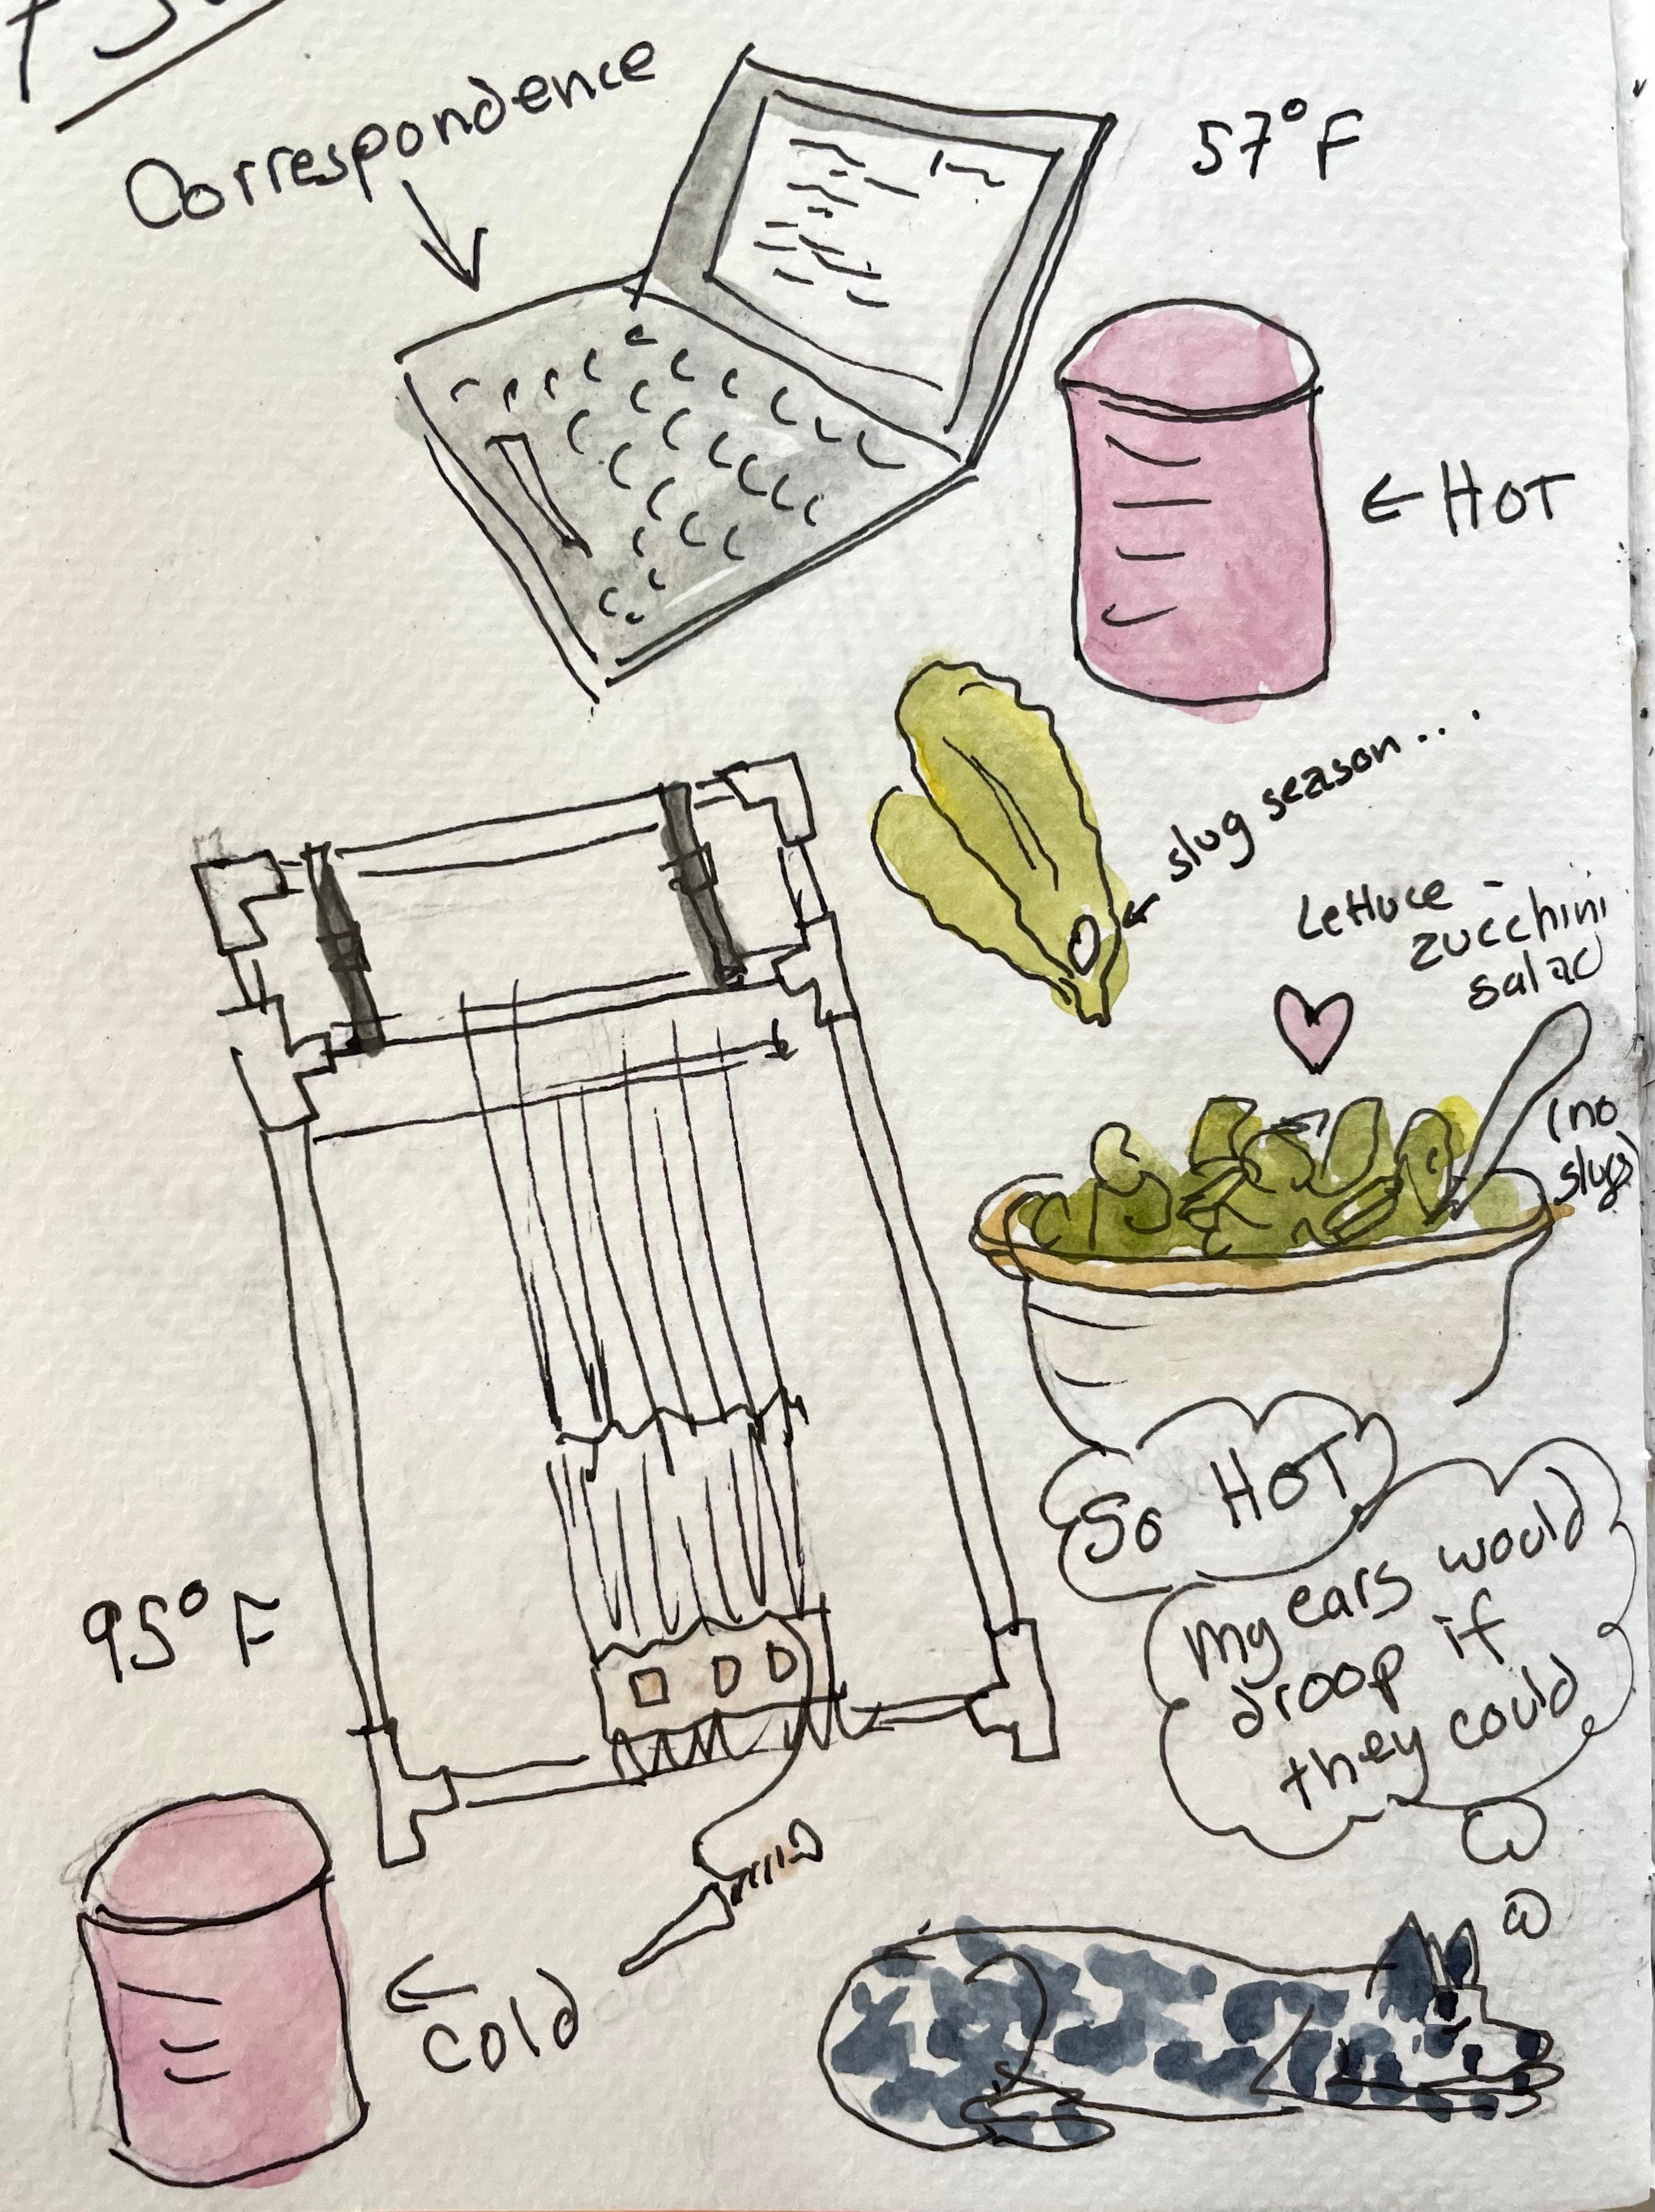 Correspondence
57°F
← HOT
slug season....
Lettuce -
zucchini
salad
(no
slugs)
So HOT
My ears would
droop if
they could
95°F
← cold